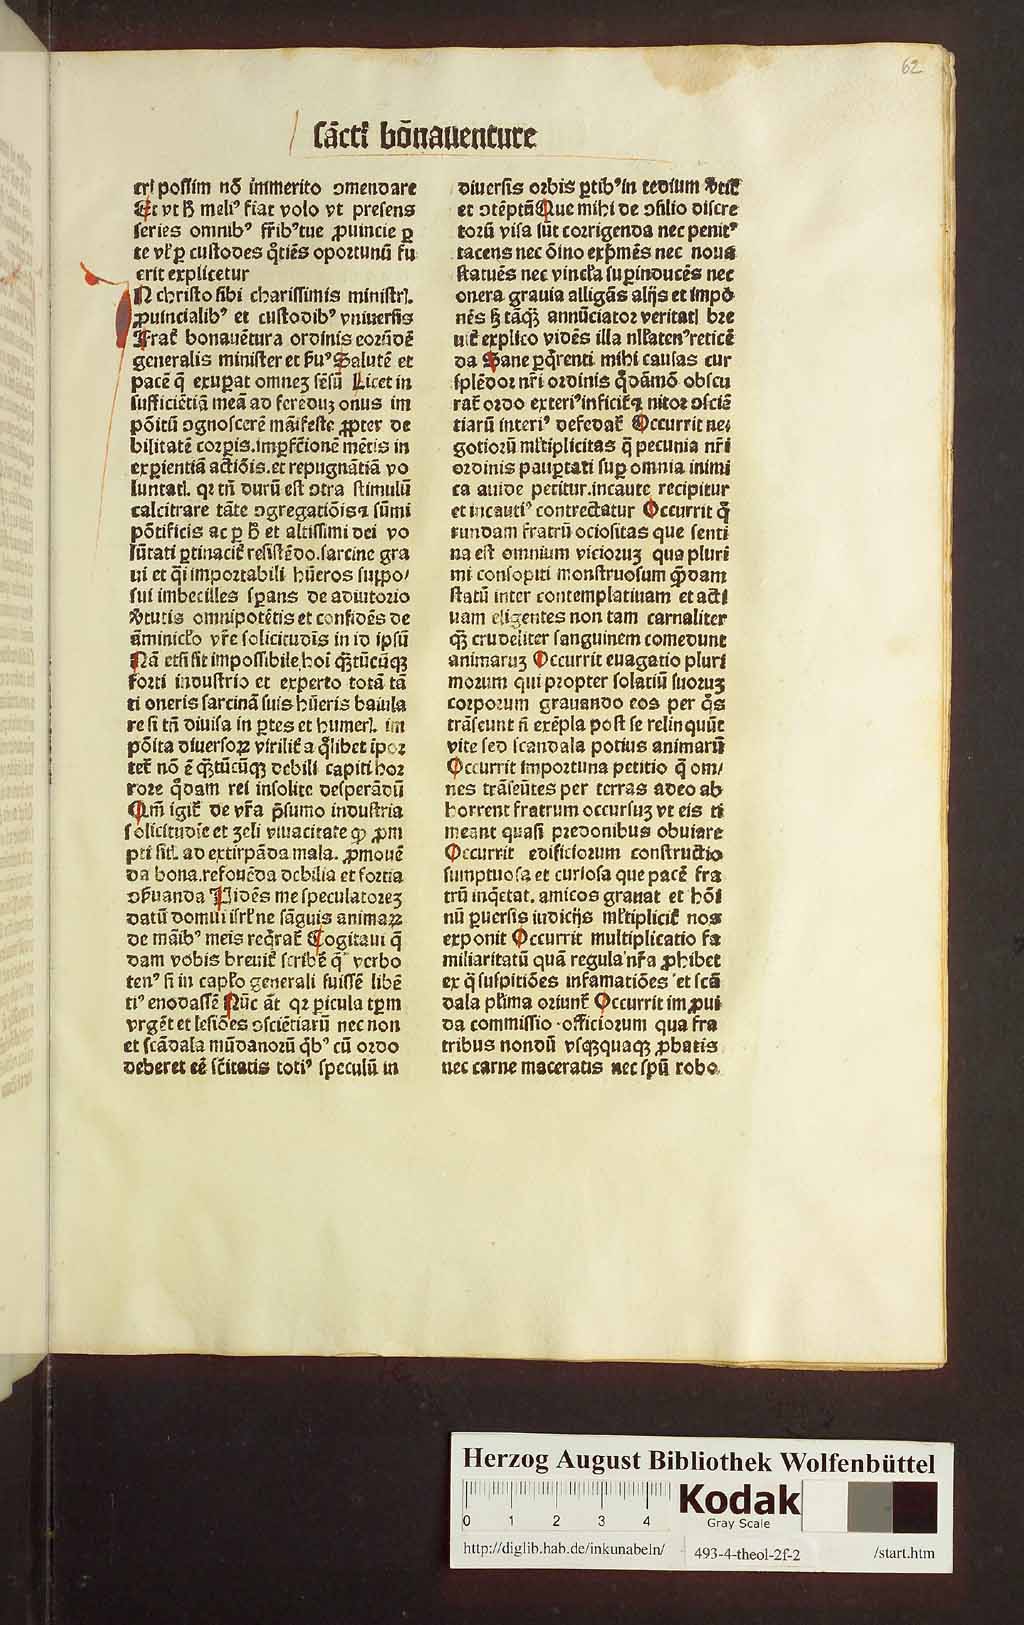 62
sācti bōnauenture
eri possim nō immerito ɔmendare
Et vt ħ meliꝰ fiat volo vt presens
series omnibꝰ fr̄ibꝰ tue ꝓuincie ꝑ
te vl̓ ꝑ custodes q̄tiēs oportunū fu
erit explicetur
N christo sibi charissimis ministrꝭ.
ꝓuincialibꝰ et custodibꝰ vniuersis
Frat̄ bonauētura ordinis eorūdē
generalis minister et ẜuꝰ Salutē et
pacē q̄ exuꝑat omneꝫ sēsū Licet in
sufficiētiā meā ad ferēduꝫ onus im
pōitū ɔgnoscerē māifeste ꝓpter de
bilitatē corꝑis.imꝑfc̄ionē mētis in
exꝑientiā actiōis.et repugnātiā vo
luntatꝭ. qꝛ tn̄ durū est ɔtra stimulū
calcitrare tāte ɔgregatiōisꝫ sūmi
pōtificis ac ꝑ ħ et altissimi dei vo
lūtati ꝑtinacit̄ resistēdo.sarcine gra
ui et q̄i importabili hūeros suppo/
sui imbecilles sꝑans de adiutorio
v̓tutis omnipotētis et confidēs de
āminicl̓o vr̄e solicitudīs in id ipsū
Nā etsi sit impossibile hoī qꝫtūcūqꝫ
forti industrio et experto totā tā
ti oneris sarcinā suis hūeris baiula
re si tn̄ diuisa in ꝑtes et humerꝭ. im
pōita diuersoꝝ virilit̄ a q̄libet īpor
tet̄ nō ē qꝫtūcūqꝫ debili capiti hor
rore q̄dam rei insolite desperādū
Qm̄ igit̄ de vr̄a p̄sumo industria
solicitudīe et zeli viuacitate ꝙ ꝓm
pti sitꝭ ad extirpāda mala. ꝓmouē
da bona.refouēda debilia et fortia
ɔẜuanda Uidēs me speculatoreꝫ
datū domui isrl̓ ne sāguis animaꝝ
de māibꝰ meis reqͥrat̄ Cogitaui q̄
dam vobis breuit̄ scribē qͥ verbo
tenꝰ si in capl̓o generali fuissē libē
tiꝰ enodassē Nūc āt qꝛ ꝑicula tꝑm
vrgēt et lesiōes ɔsciētiarū nec non
et scādala mūdanorū qͥbꝰ cū ordo
deberet eē sc̄itatis totiꝰ speculū in
diuersis orbis ꝑtibꝰ in tedium v̓tit̄
et ɔtēptū Que mihi de ɔsilio discre
torū visa sūt corrigenda nec penitꝰ
tacens nec ōino exp̄mēs nec noua
statuēs nec vincl̓a suꝑinducēs nec
onera grauia alligās alijs et impō
nēs ꝫ tāqꝫ annūciator veritatꝭ bre
uit̄ explico vidēs illa nllͣatenꝰ reticē
da Sane ꝑq̄renti mihi causas cur
splēdor nr̄i ordinis q̄dāmō obscu
rat̄ ordo exteriꝰ inficit̄ꝫ nitor ɔsciē
tiarū interiꝰ defedat̄ Occurrit ne/
gotiorū ml̓tiplicitas q̄ pecunia nr̄i
ordinis pauꝑtati suꝑ omnia inimi
ca auide petitur.incaute recipitur
et incautiꝰ contrectatur Occurrit q̄
rundam fratrū ociositas que senti
na est omnium vicioruꝫ qua pluri
mi consopiti monstruosum q̄dam
statū inter contemplatiuam et acti
uam eligentes non tam carnaliter
qꝫ crudeliter sanguinem comedunt
animaruꝫ Occurrit euagatio pluri
morum qui propter solatiū suoruꝫ
corporum grauando eos per qͦs
trāseunt n̄ exēpla post se relinquūt
vite sed scandala potius animarū
Occurrit importuna petitio q̄ om/
nes trāseūtes per terras adeo ab
horrent fratrum occursuꝫ vt eis ti
meant quasi predonibus obuiare
Occurrit edificiorum constructio
sumptuosa et curiosa que pacē fra
trū inqͥetat. amicos grauat et hōi
nū ꝑuersis iudicijs ml̓tiplicit̄ nos
exponit Occurrit multiplicatio fa
miliaritatū quā regula nr̄a ꝓhibet
ex q̄ suspitiōes infamatiōes et scā
dala plͥma oriunt̄ Occurrit imꝓui
da commissio officiorum qua fra
tribus nondū vsqꝫquaqꝫ ꝓbatis
nec carne maceratis nec spū robo
Herzog August Bibliothek Wolfenbüttel
0 1 2 3 4
Kodak
Gray Scale
http://diglib.hab.de/inkunabeln/ 493-4-theol-2f-2 /start.htm